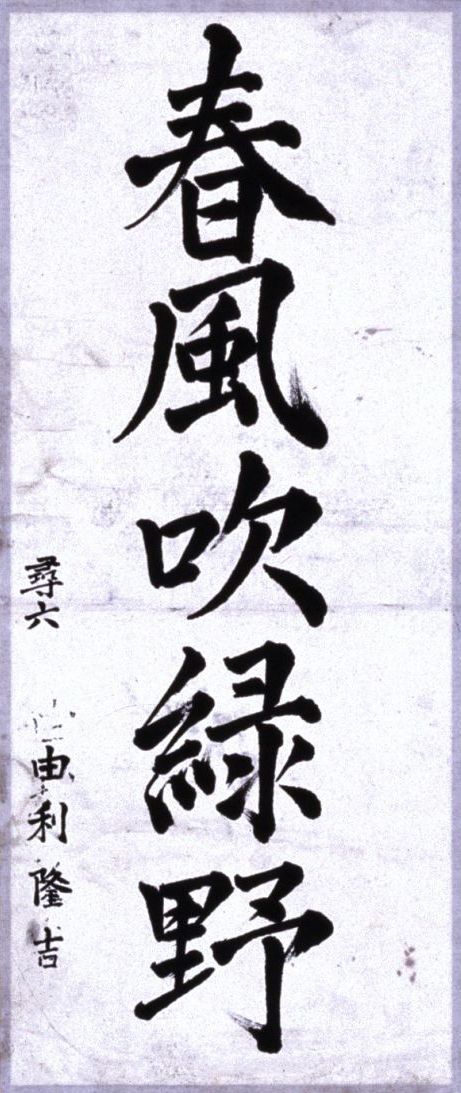 春風吹緑野
尋六
由利隆吉